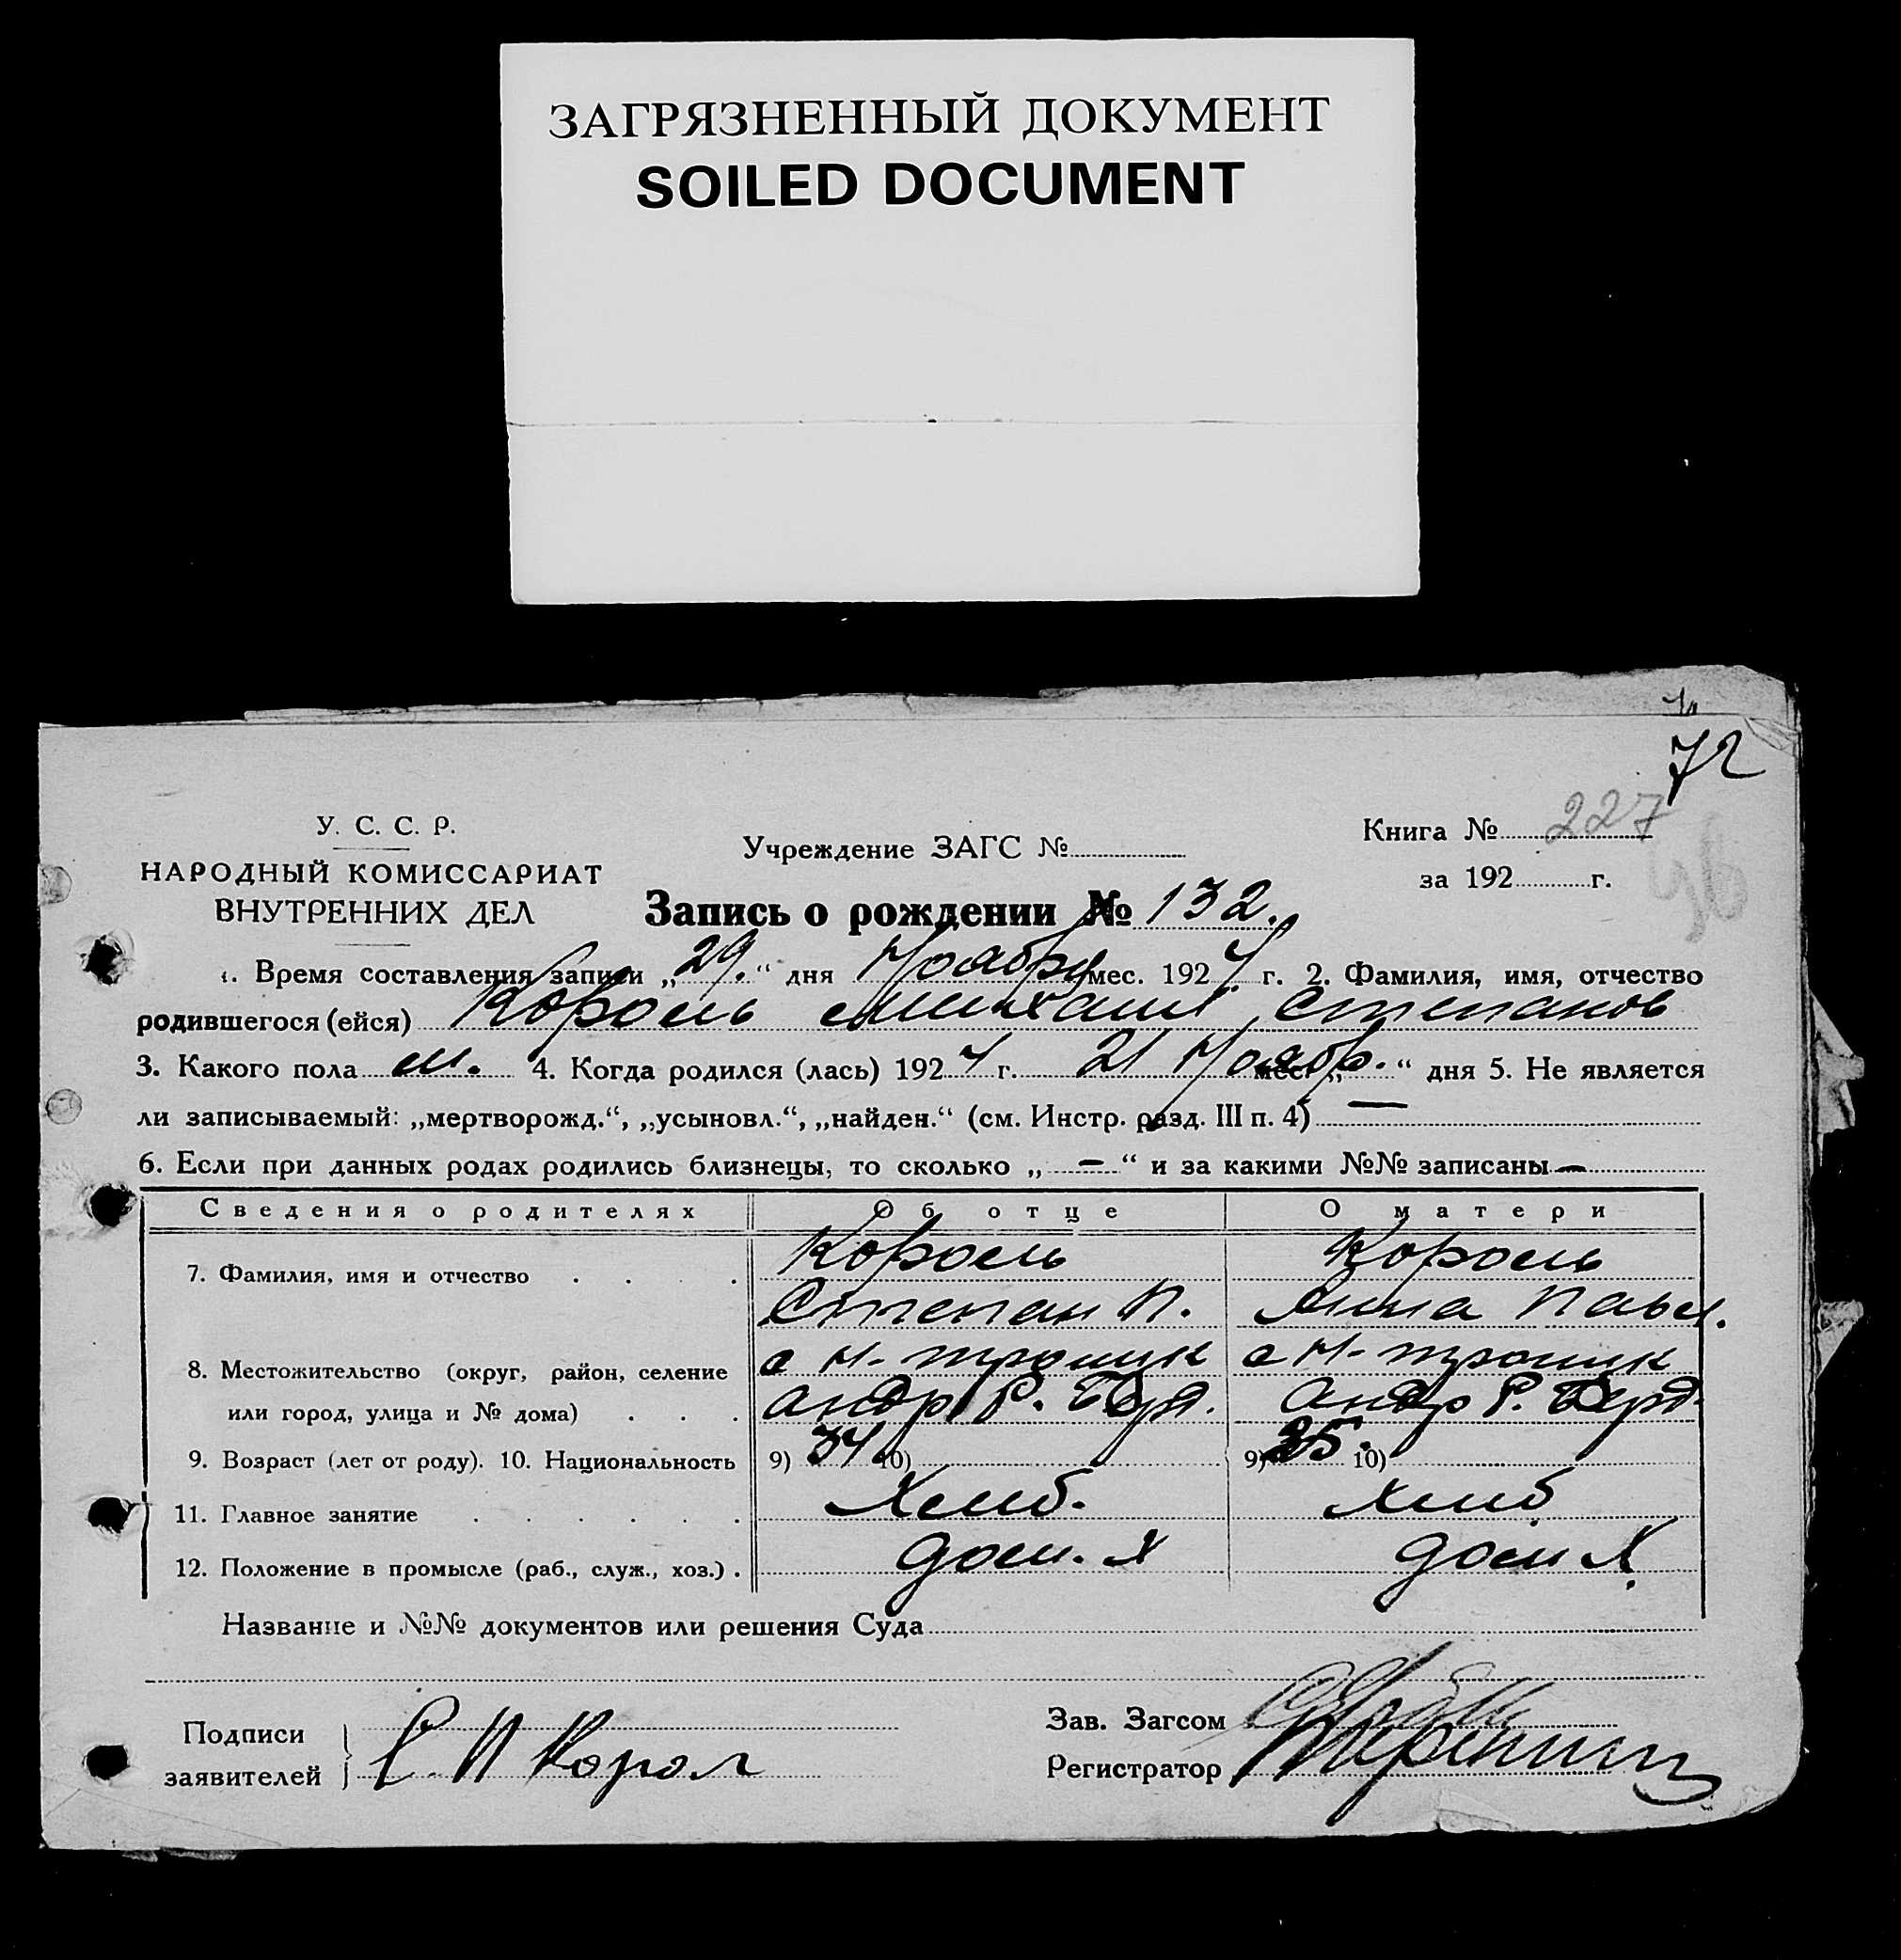 ЗАГРЯЗНЕННЫЙ ДОКУМЕНТ
SOILED DOCUMENT
72
У. С. С. Р.
НАРОДНЫЙ КОМИССАРИАТ
ВНУТРЕННИХ ДЕЛ
Учреждение ЗАГС №
Книга № 227
за 192 г.
Запись о рождении № 132.
1. Время составления записи „29.“ дня Ноября мес. 1927 г. 2. Фамилия, имя, отчество
родившегося (ейся) Король Михаил Степанов
3. Какого пола м. 4. Когда родился (лась) 1927 г. 21 Ноябр. мес. „ “ дня 5. Не является
ли записываемый: „мертворожд.“, „усыновл.“, „найден.“ (см. Инстр. разд. III п. 4) —
6. Если при данных родах родились близнецы, то сколько „ — “ и за какими №№ записаны —
Сведения о родителях Об отце О матери
7. Фамилия, имя и отчество Король Король
Степан П. Анна Павл.
8. Местожительство (округ, район, селение с Н-троицк с Н-троицк
или город, улица и № дома) Андр Р. Берд. Андр Р. Берд.
9. Возраст (лет от роду). 10. Национальность 9) 34 10) 9) 35. 10)
11. Главное занятие Хлиб. Хлиб
12. Положение в промысле (раб., служ., хоз.) дом. Х дом Х.
Название и №№ документов или решения Суда
Подписи
заявителей С. П Корол
Зав. Загсом
Регистратор